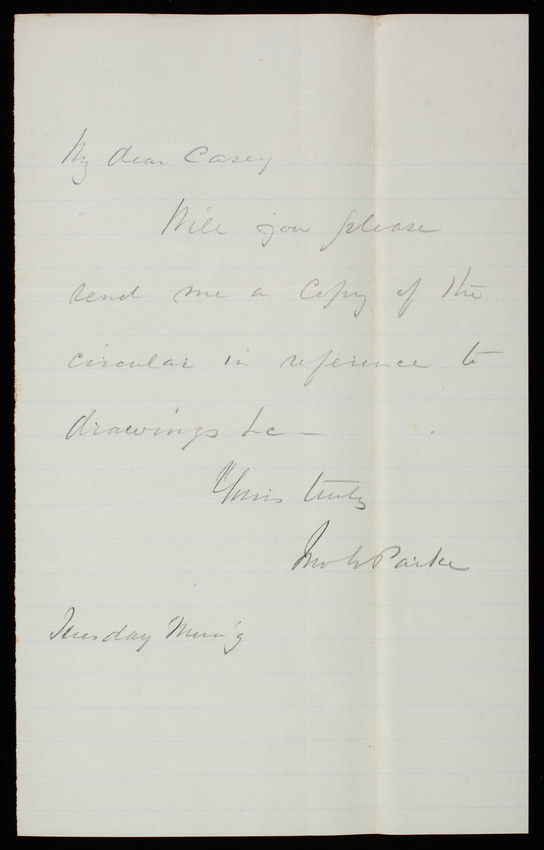 My dear Casey
Will you please
send me a Copy of the
circular in reference to
drawings &c —
Yours truly
Jno G Parke
Tuesday Morn'g